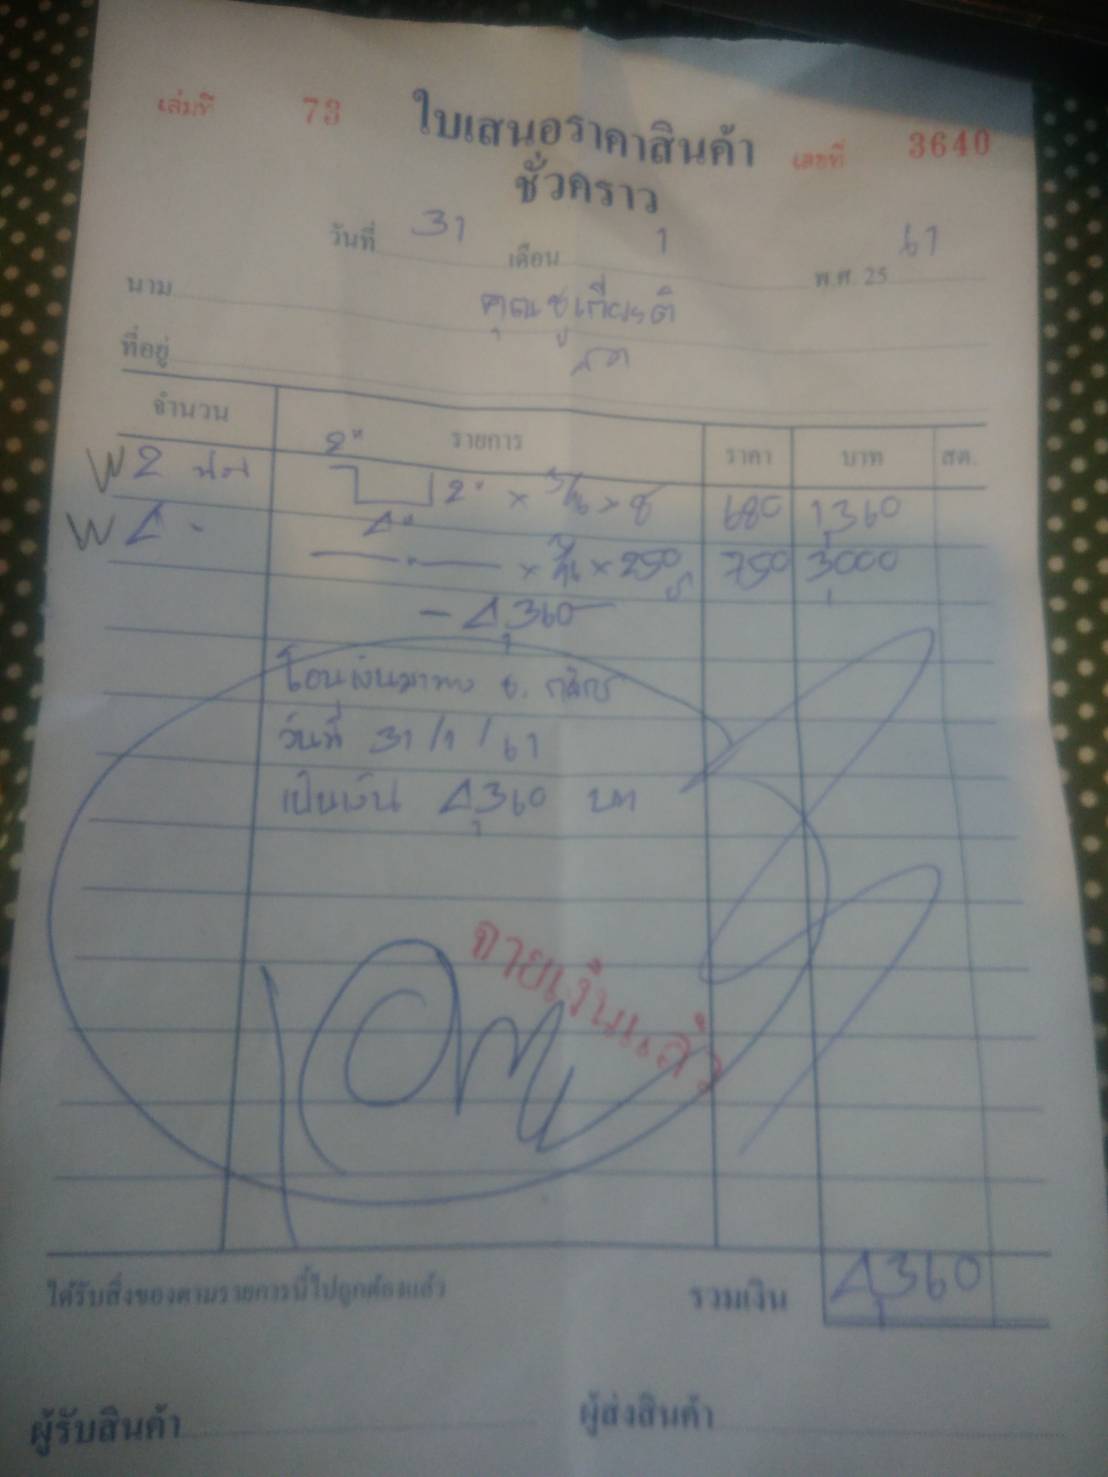 เล่มที่ 73 ใบเสนอราคาสินค้า เลขที่ 3640
ชั่วคราว
วันที่ 31 เดือน 1 พ.ศ. 25 61
นาม คุณชูเกียรติ
ที่อยู่ สด
จำนวน รายการ ราคา บาท สต.
2"
W 2 2" × 3/16 × 8' 680 1,360
4"
W 4 " — " — × 3/16 × 250 750 3,000
- 4,360 -
โอนเงินมาทาง ธ. กสิกร
วันที่ 31/1/61
เป็นเงิน 4,360 บาท
จ่ายเงินแล้ว
ได้รับสิ่งของตามรายการนี้ไปถูกต้องแล้ว รวมเงิน 4,360
ผู้รับสินค้า ผู้ส่งสินค้า